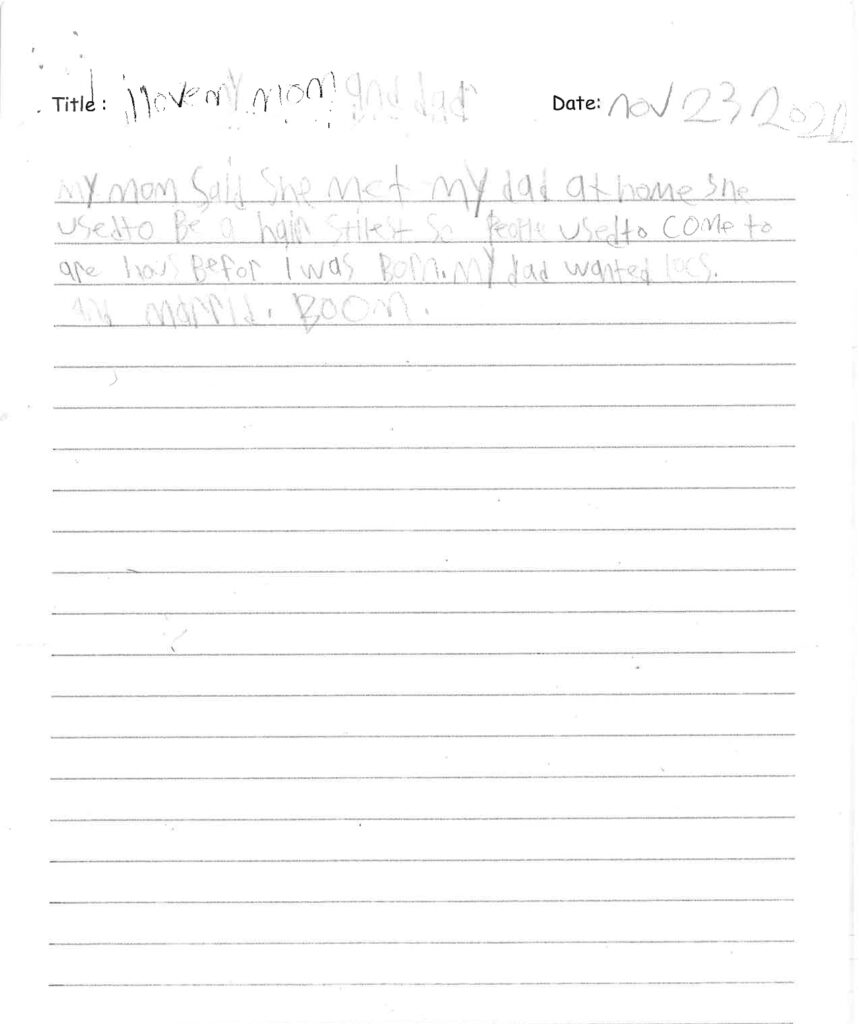 Title: i love my mom and dad Date: nov 23 2021
My mom Said She met my dad at home she
used to Be a hair stilest So People used to come to
are hous Befor I was Born. My dad wanted locs.
and marrid. BOOM.